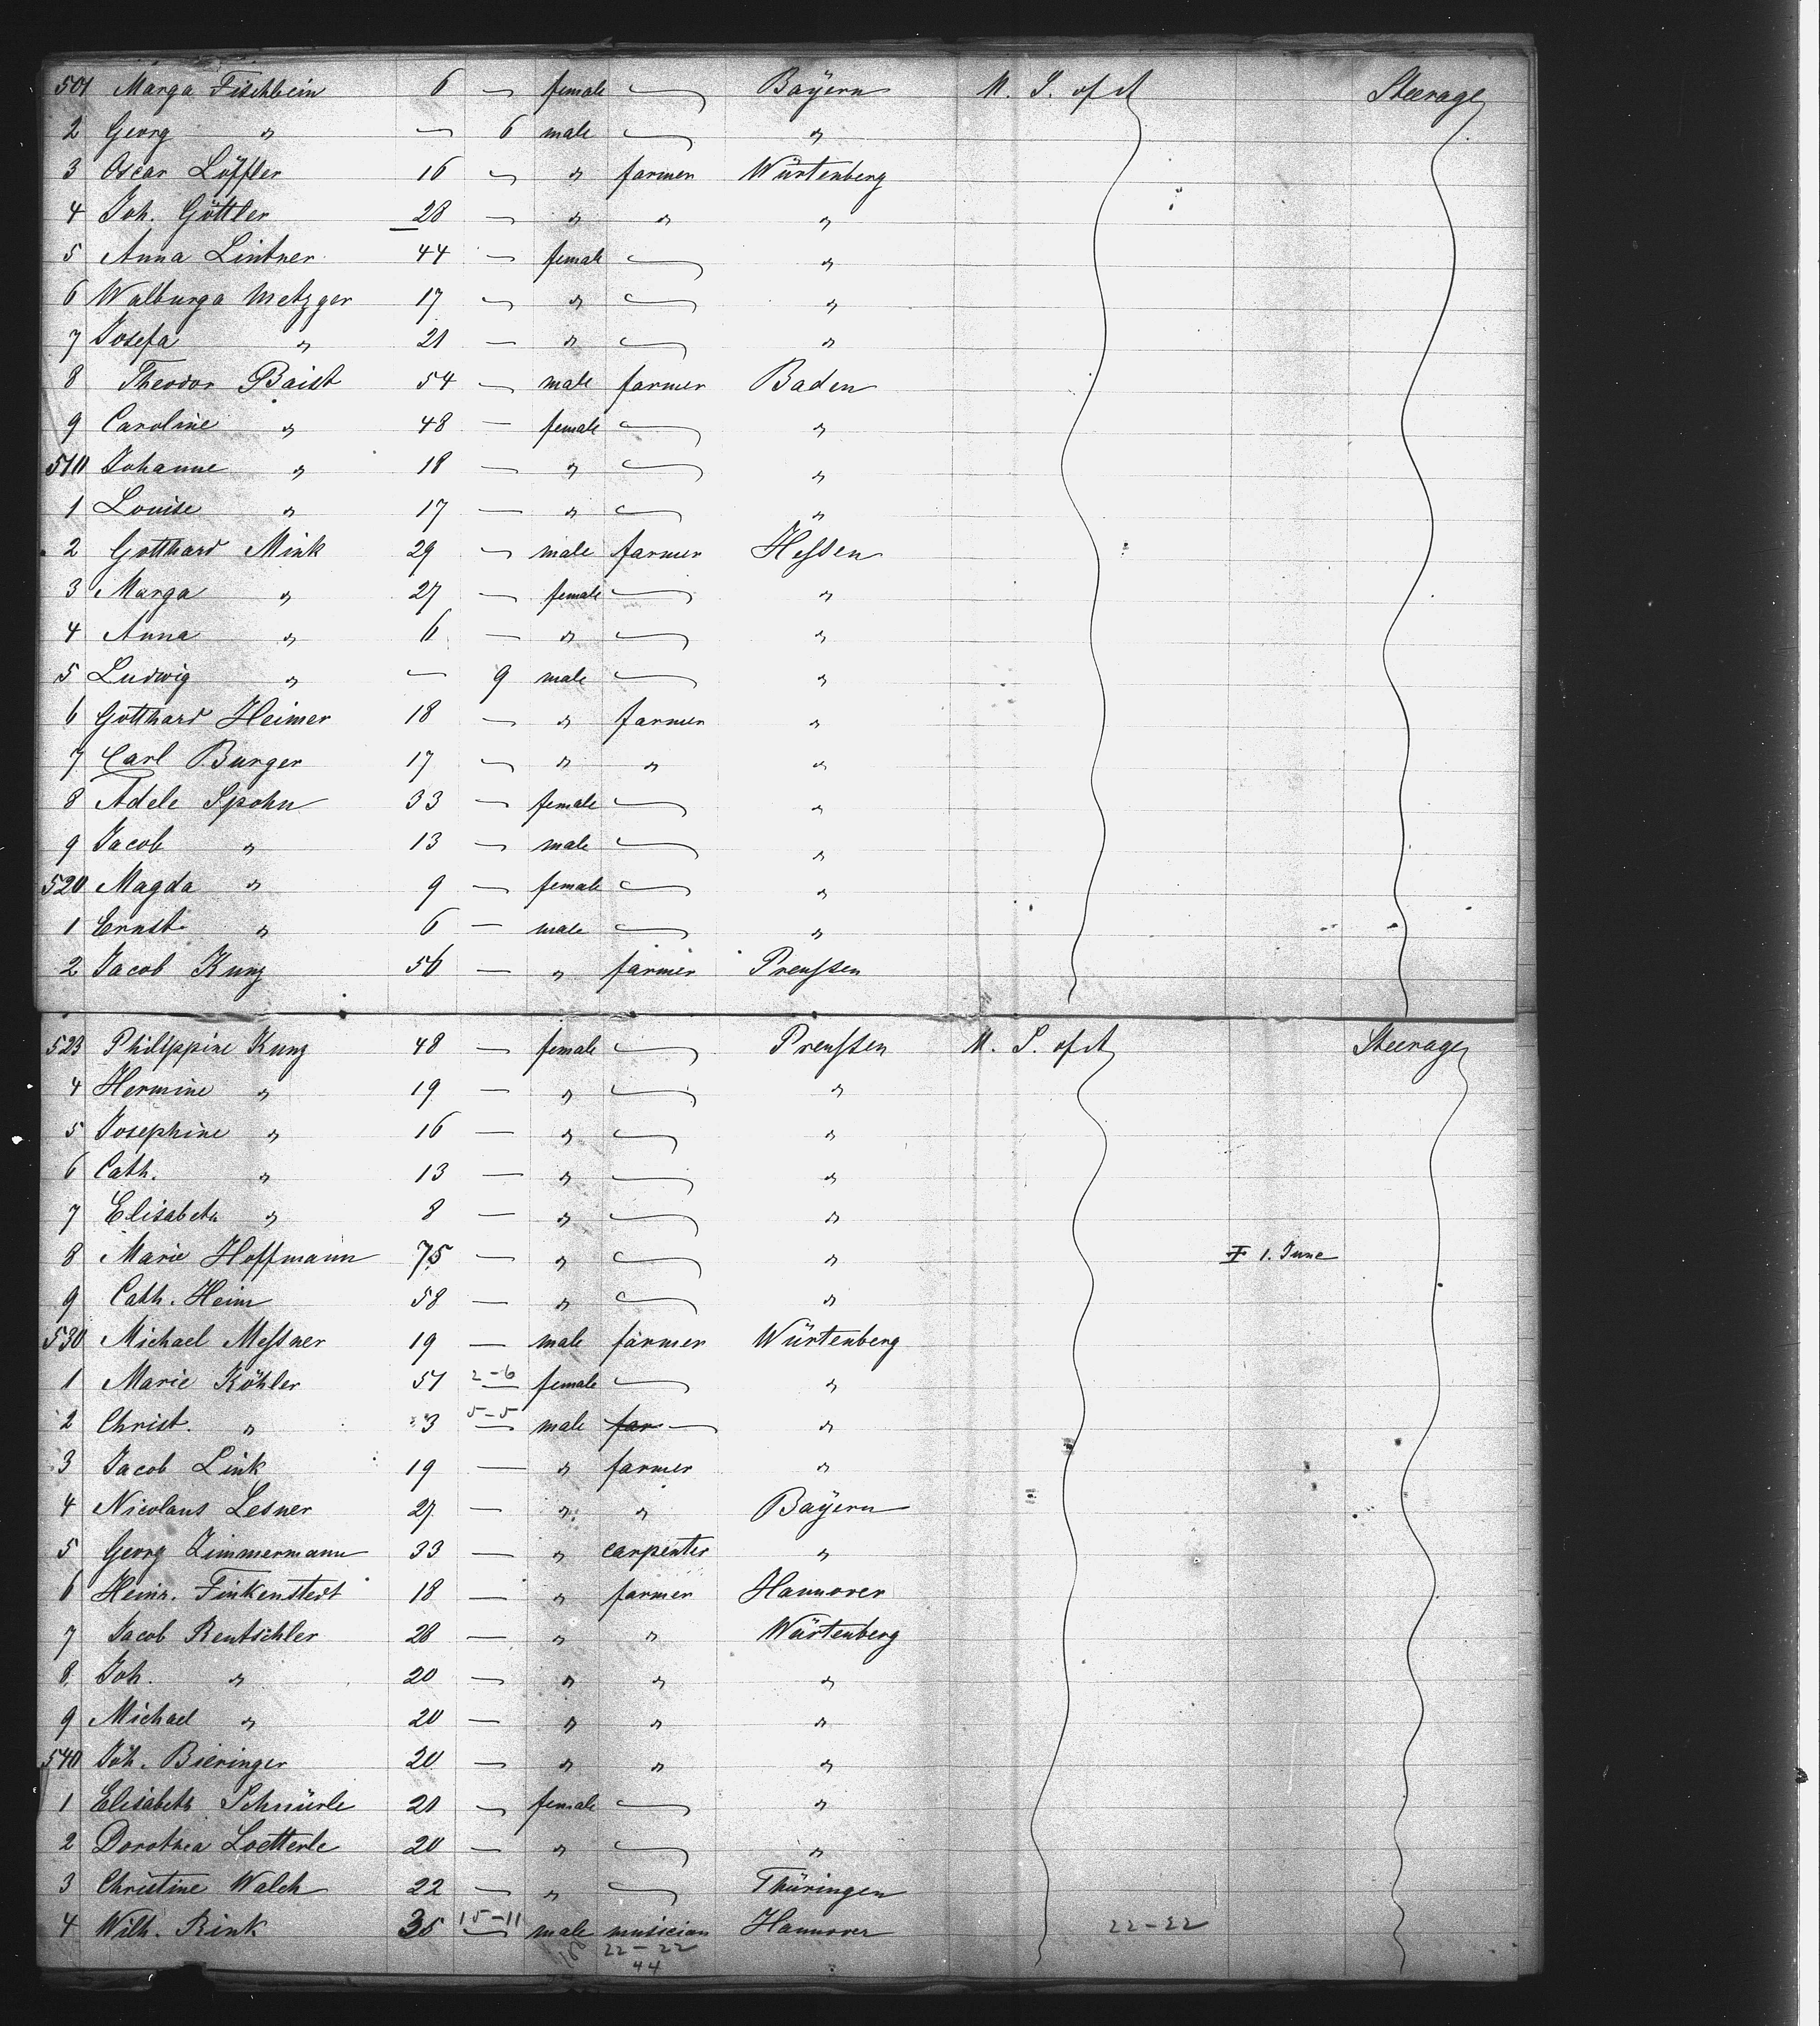 501 Marga Fischbein 6 — female — Bayern U. S. of A Steerage
2 Georg " — 6 male — "
3 Oscar Löffler 16 — " farmer Würtenberg
4 Joh. Göttler 28 — " " "
5 Anna Lintner 44 — female — "
6 Walburga Metzger 17 — " — "
7 Josefa " 21 — " — "
8 Theodor Baist 54 — male farmer Baden
9 Caroline " 48 — female — "
510 Johanne " 18 — " — "
1 Louise " 17 — " — "
2 Gotthard Mink 29 — male farmer Hessen
3 Marga " 27 — female — "
4 Anna " 6 — " — "
5 Ludwig " — 9 male — "
6 Gotthard Heimer 18 — " farmer "
7 Carl Burger 17 — " " "
8 Adele Spohn 33 — female — "
9 Jacob " 13 — male — "
520 Magda " 9 — female — "
1 Ernst " 6 — male — "
2 Jacob Kunz 56 — " farmer Preussen
523 Philippine Kunz 48 — female — Preussen U. S. of A Steerage
4 Hermine " 19 — " — "
5 Josephine " 16 — " — "
6 Cath. " 13 — " — "
7 Elisabeth " 8 — " — "
8 Marie Hoffmann 75 — " — " 1. June
9 Cath. Heim 58 — " — "
530 Michael Messner 19 — male farmer Würtenberg
1 Marie Köhler 51 2-6 — female — "
2 Christ. " 3 5-5 — male far — "
3 Jacob Link 19 — " farmer "
4 Nicolaus Lesner 27 — " " Bayern
5 Georg Zimmermann 33 — " carpenter "
6 Heinr. Finkenstedt 18 — " farmer Hannover
7 Jacob Rentschler 28 — " " Würtenberg
8 Joh. " 20 — " " "
9 Michael " 20 — " " "
540 Joh. Bieringer 20 — " " "
1 Elisabeth Schnürle 21 — female — "
2 Dorothea Loetterle 20 — " — "
3 Christine Walch 22 — " — Thüringen
4 Wilh. Rink 35 15-11 — male musician Hannover 22-22
22-22
44